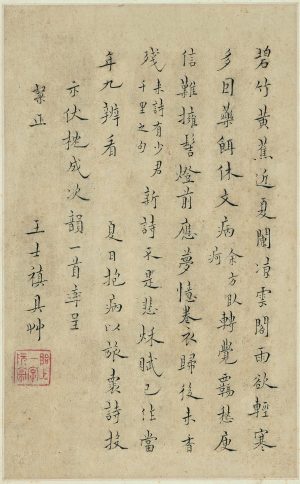 碧竹黃蕉近夏闌凉雲閣雨欲輕寒
多因藥餌休文病余方臥痾轉覺羈愁庾
信難擁髻燈前應夢憶卷衣歸後未香
殘來詩有少君千里之句新詩不是悲秋賦已作當
年九辨看 夏日抱病以旅褱詩投
亦伏枕成次韻一首率呈
正
王士禛具艸